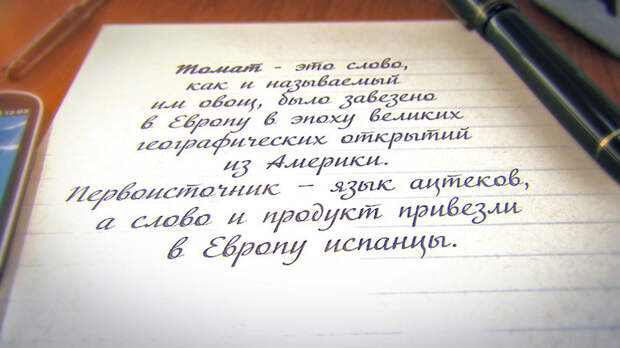 Томат - это слово,
как и называемый
им овощ, было завезено
в Европу в эпоху великих
географических открытий
из Америки.
Первоисточник – язык ацтеков,
а слово и продукт привезли
в Европу испанцы.